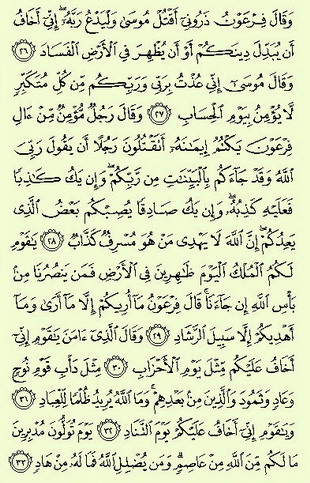 وَقَالَ فِرْعَوْنُ ذَرُونِىٓ أَقْتُلْ مُوسَىٰ وَلْيَدْعُ رَبَّهُۥٓ ۖ إِنِّىٓ أَخَافُ
أَن يُبَدِّلَ دِينَكُمْ أَوْ أَن يُظْهِرَ فِى ٱلْأَرْضِ ٱلْفَسَادَ ٢٦
وَقَالَ مُوسَىٰٓ إِنِّى عُذْتُ بِرَبِّى وَرَبِّكُم مِّن كُلِّ مُتَكَبِّرٍ
لَّا يُؤْمِنُ بِيَوْمِ ٱلْحِسَابِ ٢٧ وَقَالَ رَجُلٌ مُّؤْمِنٌ مِّنْ ءَالِ
فِرْعَوْنَ يَكْتُمُ إِيمَٰنَهُۥٓ أَتَقْتُلُونَ رَجُلًا أَن يَقُولَ رَبِّىَ
ٱللَّهُ وَقَدْ جَآءَكُم بِٱلْبَيِّنَٰتِ مِن رَّبِّكُمْ ۖ وَإِن يَكُ كَٰذِبًا
فَعَلَيْهِ كَذِبُهُۥ ۖ وَإِن يَكُ صَادِقًا يُصِبْكُم بَعْضُ ٱلَّذِى
يَعِدُكُمْ ۖ إِنَّ ٱللَّهَ لَا يَهْدِى مَنْ هُوَ مُسْرِفٌ كَذَّابٌ ٢٨ يَٰقَوْمِ
لَكُمُ ٱلْمُلْكُ ٱلْيَوْمَ ظَٰهِرِينَ فِى ٱلْأَرْضِ فَمَن يَنصُرُنَا مِنۢ
بَأْسِ ٱللَّهِ إِن جَآءَنَا ۚ قَالَ فِرْعَوْنُ مَآ أُرِيكُمْ إِلَّا مَآ أَرَىٰ وَمَآ
أَهْدِيكُمْ إِلَّا سَبِيلَ ٱلرَّشَادِ ٢٩ وَقَالَ ٱلَّذِىٓ ءَامَنَ يَٰقَوْمِ إِنِّىٓ
أَخَافُ عَلَيْكُم مِّثْلَ يَوْمِ ٱلْأَحْزَابِ ٣٠ مِثْلَ دَأْبِ قَوْمِ نُوحٍ
وَعَادٍ وَثَمُودَ وَٱلَّذِينَ مِنۢ بَعْدِهِمْ ۚ وَمَا ٱللَّهُ يُرِيدُ ظُلْمًا لِّلْعِبَادِ ٣١
وَيَٰقَوْمِ إِنِّىٓ أَخَافُ عَلَيْكُمْ يَوْمَ ٱلتَّنَادِ ٣٢ يَوْمَ تُوَلُّونَ مُدْبِرِينَ
مَا لَكُم مِّنَ ٱللَّهِ مِنْ عَاصِمٍ ۗ وَمَن يُضْلِلِ ٱللَّهُ فَمَا لَهُۥ مِنْ هَادٍ ٣٣